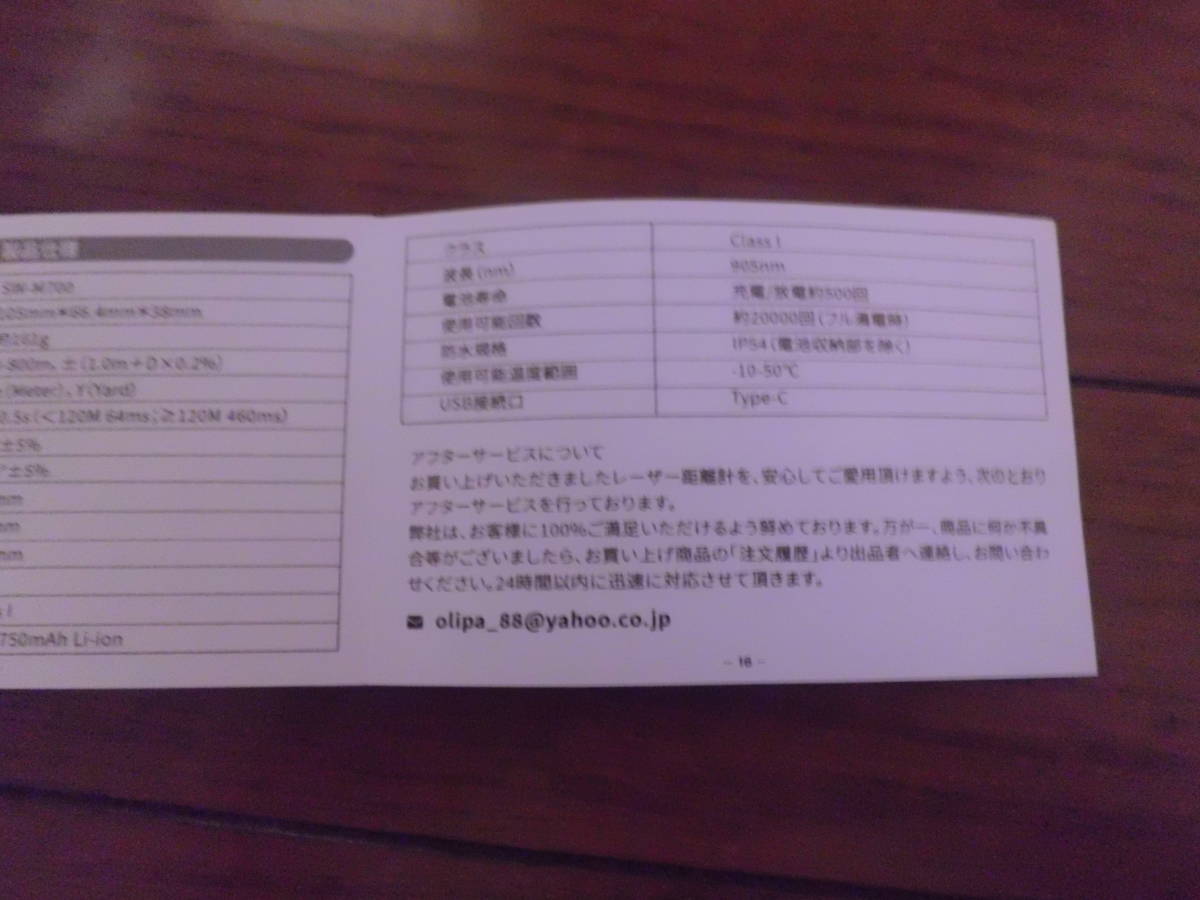 製品仕様
SW-M700
105mm*66.4mm*38mm
約161g
-800m、±(1.0m+D×0.2%)
(Meter)、Y(Yard)
0.5s(<120M 64ms;≥120M 460ms)
±5%
±5%
mm
mm
mm
I
750mAh Li-ion
クラス Class I
波長(nm) 905nm
電池寿命 充電/放電約500回
使用可能回数 約20000回(フル満電時)
防水規格 IP54(電池収納部を除く)
使用可能温度範囲 -10-50℃
USB接続口 Type-C
アフターサービスについて
お買い上げいただきましたレーザー距離計を、安心してご愛用頂けますよう、次のとおり
アフターサービスを行っております。
弊社は、お客様に100%ご満足いただけるよう努めております。万が一、商品に何か不具
合等がございましたら、お買い上げ商品の「注文履歴」より出品者へ連絡し、お問い合わ
せください。24時間以内に迅速に対応させて頂きます。
olipa_88@yahoo.co.jp
- 16 -